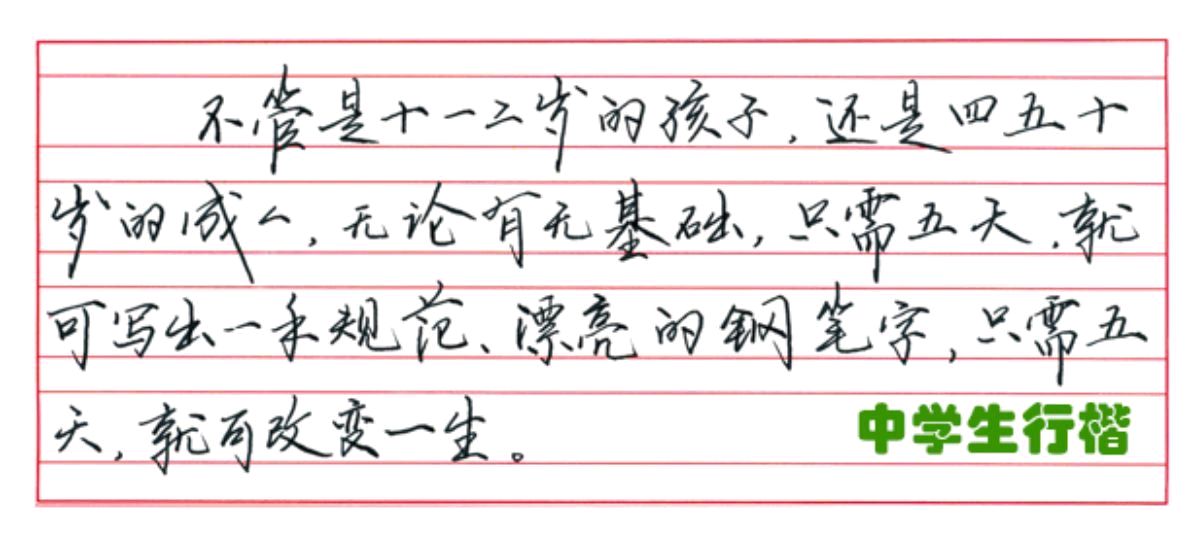 不管是十一二岁的孩子,还是四五十
岁的成人,无论有无基础,只需五天,就
可写出一手规范、漂亮的钢笔字,只需五
天,就可改变一生。
中学生行楷